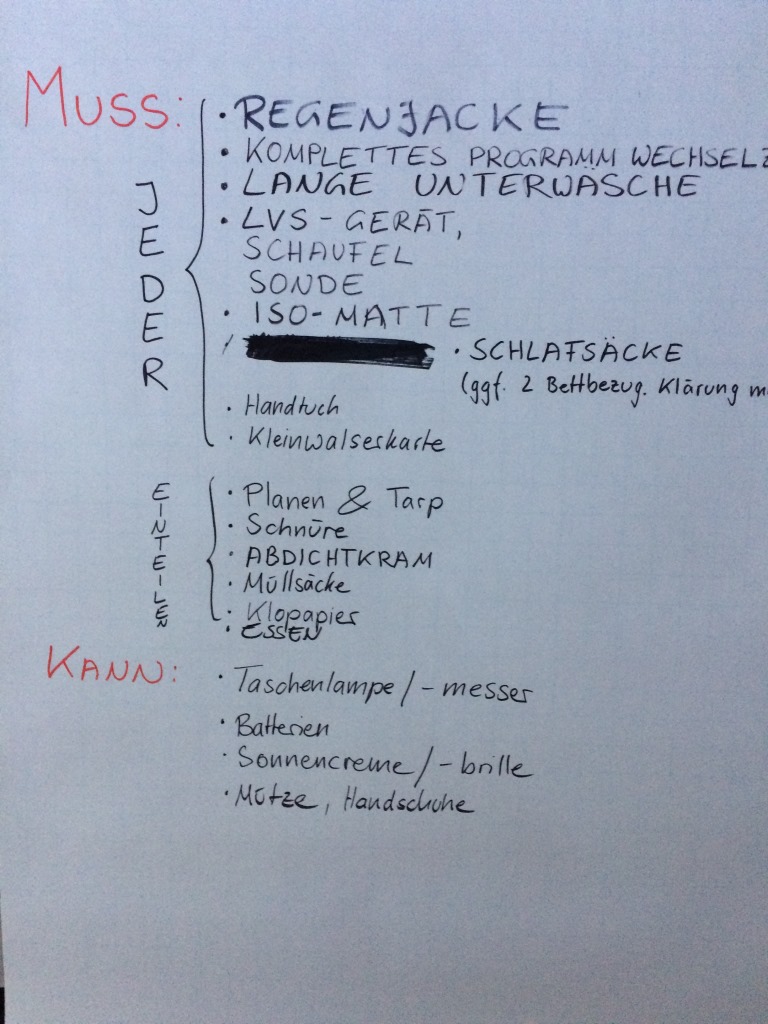 MUSS:
JEDER
• REGENJACKE
• KOMPLETTES PROGRAMM WECHSELZ
• LANGE UNTERWÄSCHE
• LVS-GERÄT,
SCHAUFEL
SONDE
• ISO-MATTE
• SCHLAFSÄCKE
(ggf. 2 Bettbezug. Klärung m
• Handtuch
• Kleinwalserkarte
EINTEILEN
• Planen & Tarp
• Schnüre
• ABDICHTKRAM
• Müllsäcke
• Klopapier
• ESSEN
KANN:
• Taschenlampe/-messer
• Batterien
• Sonnencreme/-brille
• Mütze, Handschuhe